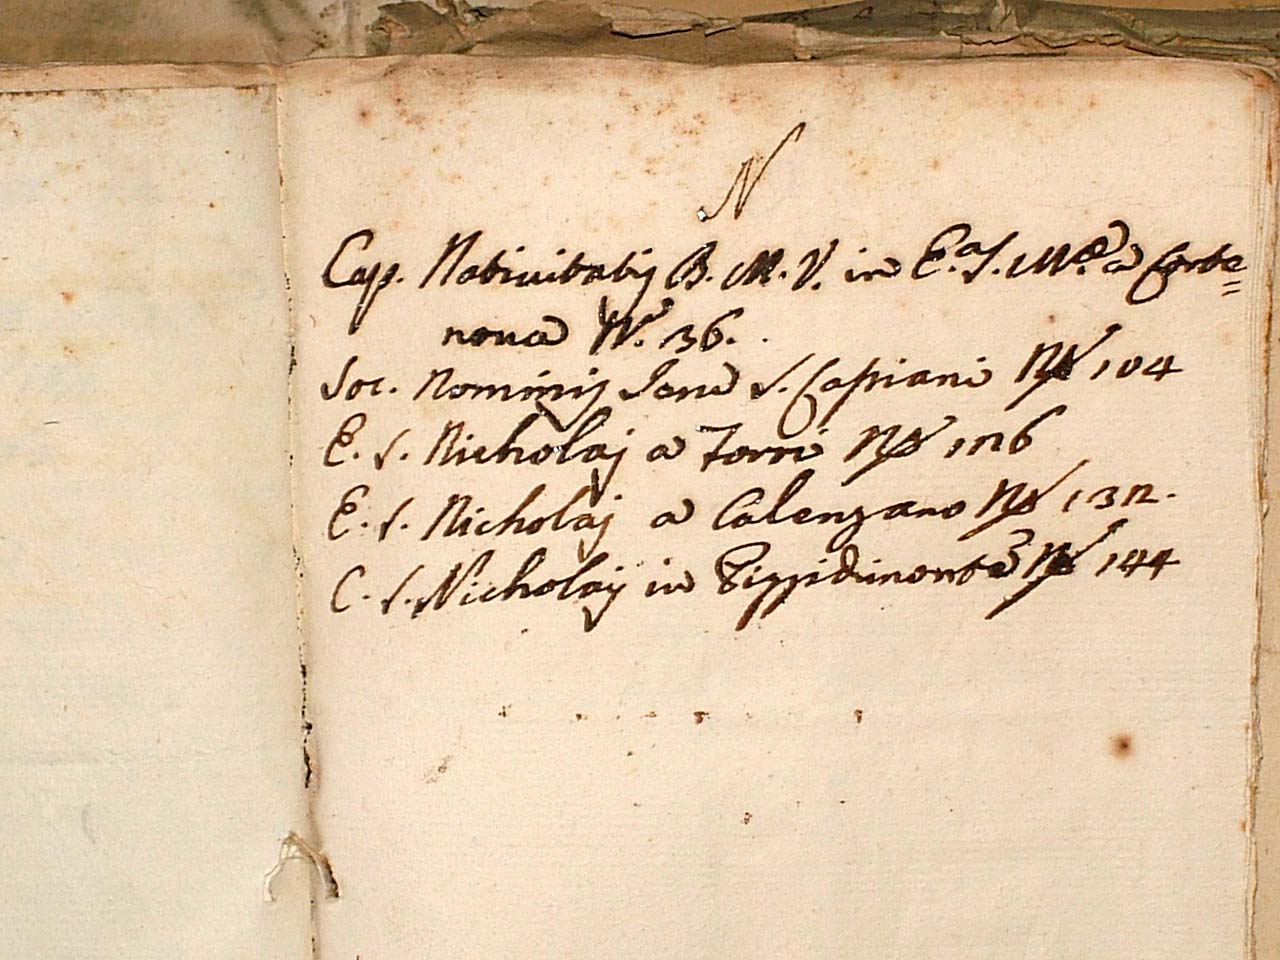 N
Cap. Nativitatis B. M. V. in E.a S. M.e a Corte=
noua N. 36.
Soc. Nominis Iesu S. Capiani N 104
E. S. Nicholaj a Torri N 126
E. S. Nicholaj a Calenzano N 132.
C. S. Nicholaj in Pizzidimonte N 144